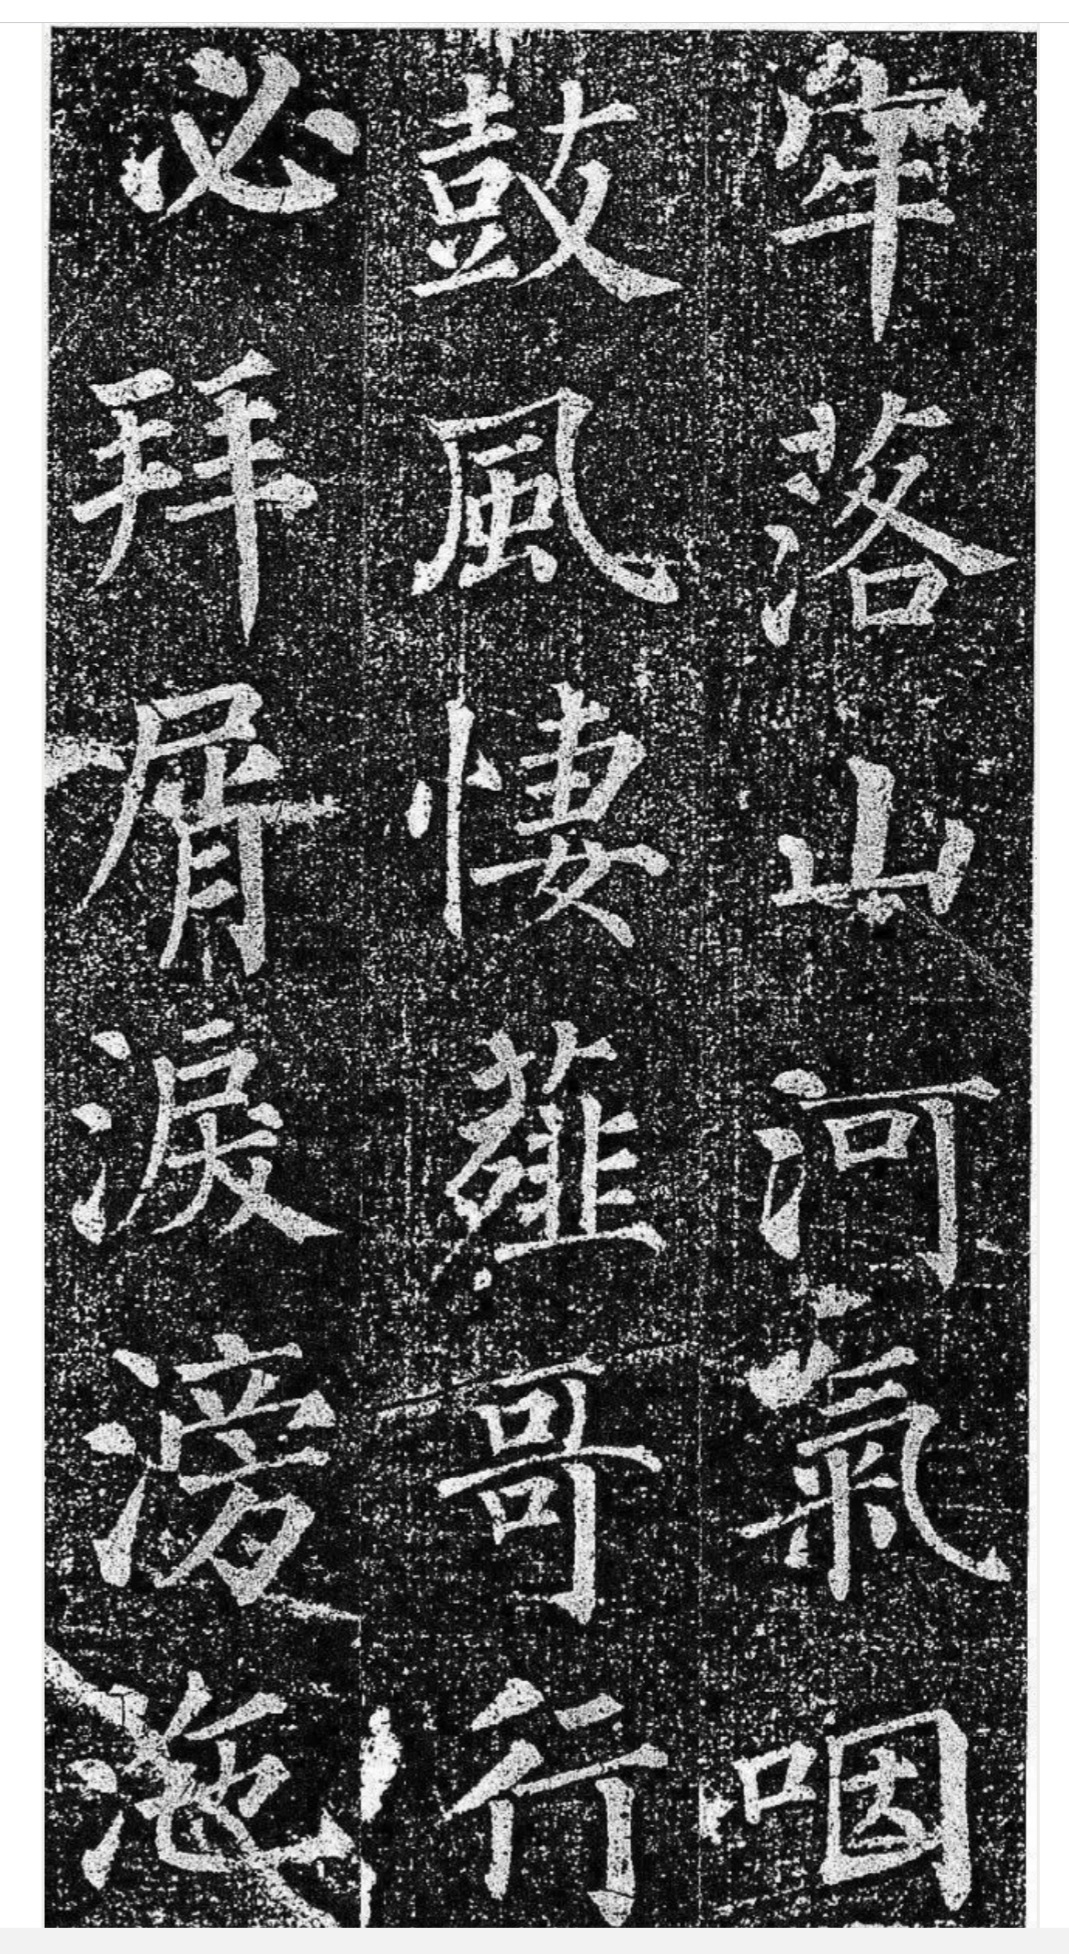 牢落山河氣咽
鼓風悽薤哥行
必拜屑淚滂沲